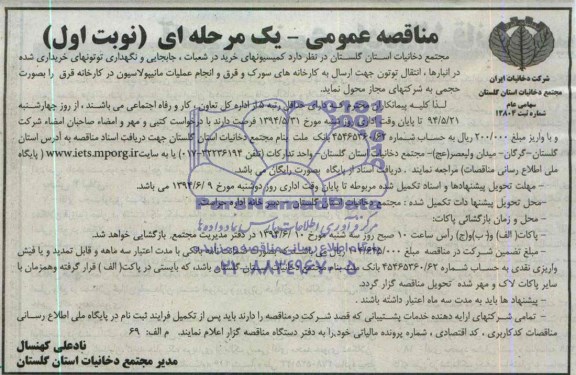 مناقصه عمومی - یک مرحله ای (نوبت اول)
شرکت دخانیات ایران
مجتمع دخانیات استان گلستان
سهامی عام
شماره ثبت ۱۲۸۰۴
مجتمع دخانیات استان گلستان در نظر دارد کمیسیونهای خرید در شعبات ، جابجایی و نگهداری توتونهای خریداری شده
در انبارها ، انتقال توتون جهت ارسال به کارخانه های سورک و قرق و انجام عملیات مانیپولاسیون در کارخانه قرق را بصورت
حجمی به شرکتهای مجاز محول نماید.
لذا کلیه پیمانکاران رتبه از اداره کل تعاون ، کار و رفاه اجتماعی می باشند ، از روز چهارشنبه
۹۴/۵/۲۱ تا پایان وقت اداری روز مورخ ۱۳۹۴/۵/۳۱ فرصت دارند با درخواست کتبی و مهر و امضاء صاحبان امضاء شرکت
و با واریز مبلغ ۲۰۰/۰۰۰ ریال به حساب شماره بانک ملت بنام مجتمع دخانیات استان گلستان جهت دریافت اسناد مناقصه به آدرس استان
گلستان-گرگان- میدان ولیعصر(عج)- مجتمع دخانیات استان گلستان- واحد تدارکات (تلفن ۳۲۲۳۶۱۹۴-۰۱۷) یا به سایت www.iets.mporg.ir ( پایگاه
ملی اطلاع رسانی مناقصات) مراجعه نمایند . دریافت اسناد از پایگاه بصورت رایگان می باشد.
- مهلت تحویل پیشنهادها و اسناد تکمیل شده مربوطه تا پایان وقت اداری روز دوشنبه مورخ ۱۳۹۴/۶/۹ می باشد.
-محل تحویل پیشنهادات تکمیل شده : مجتمع دخانیات استان گلستان - دبیر خانه اداره حراست
- محل و زمان بازگشائی پاکات:
- پاکات( الف) و( ب)و(ج) رأس ساعت ۱۰ صبح روز سه شنبه مورخ ۱۳۹۴/۶/۱۰ در دفتر مدیریت مجتمع، بازگشایی خواهد شد.
- مبلغ تضمین شرکت در مناقصه مبلغ ریال می باشد که بصورت ضمانتنامه بانکی با مدت اعتبار سه ماهه و قابل تمدید و یا فیش
واریزی نقدی به حساب شماره ۴۵۴۶۵۳۶۰/۶۲ بانک بنام باشد، که بایستی در پاکت( الف ) قرار گرفته وهمزمان با
سایر پاکات لاک و مهر شده تحویل مناقصه گزار گردد.
- پیشنهاد ها باید به مدت سه ماه اعتبار داشته باشند .
- تمامی شرکتهای ارایه دهنده خدمات پشتیبانی که قصد شرکت درمناقصه را دارند باید پس از تکمیل فرایند ثبت نام در پایگاه ملی اطلاع رسانی
مناقصات کدکاربری ، کد اقتصادی ، شماره پرونده مالیاتی خود را به دفتر دستگاه مناقصه گزار اعلام نمایند. م الف: ۶۹
نادعلی کهنسال
مدیر مجتمع دخانیات استان گلستان
ParsNamadData
پایگاه اطلاع رسانی مناقصه مزایده
۰۲۱-۸۸۳۴۹۶۷۰-۵